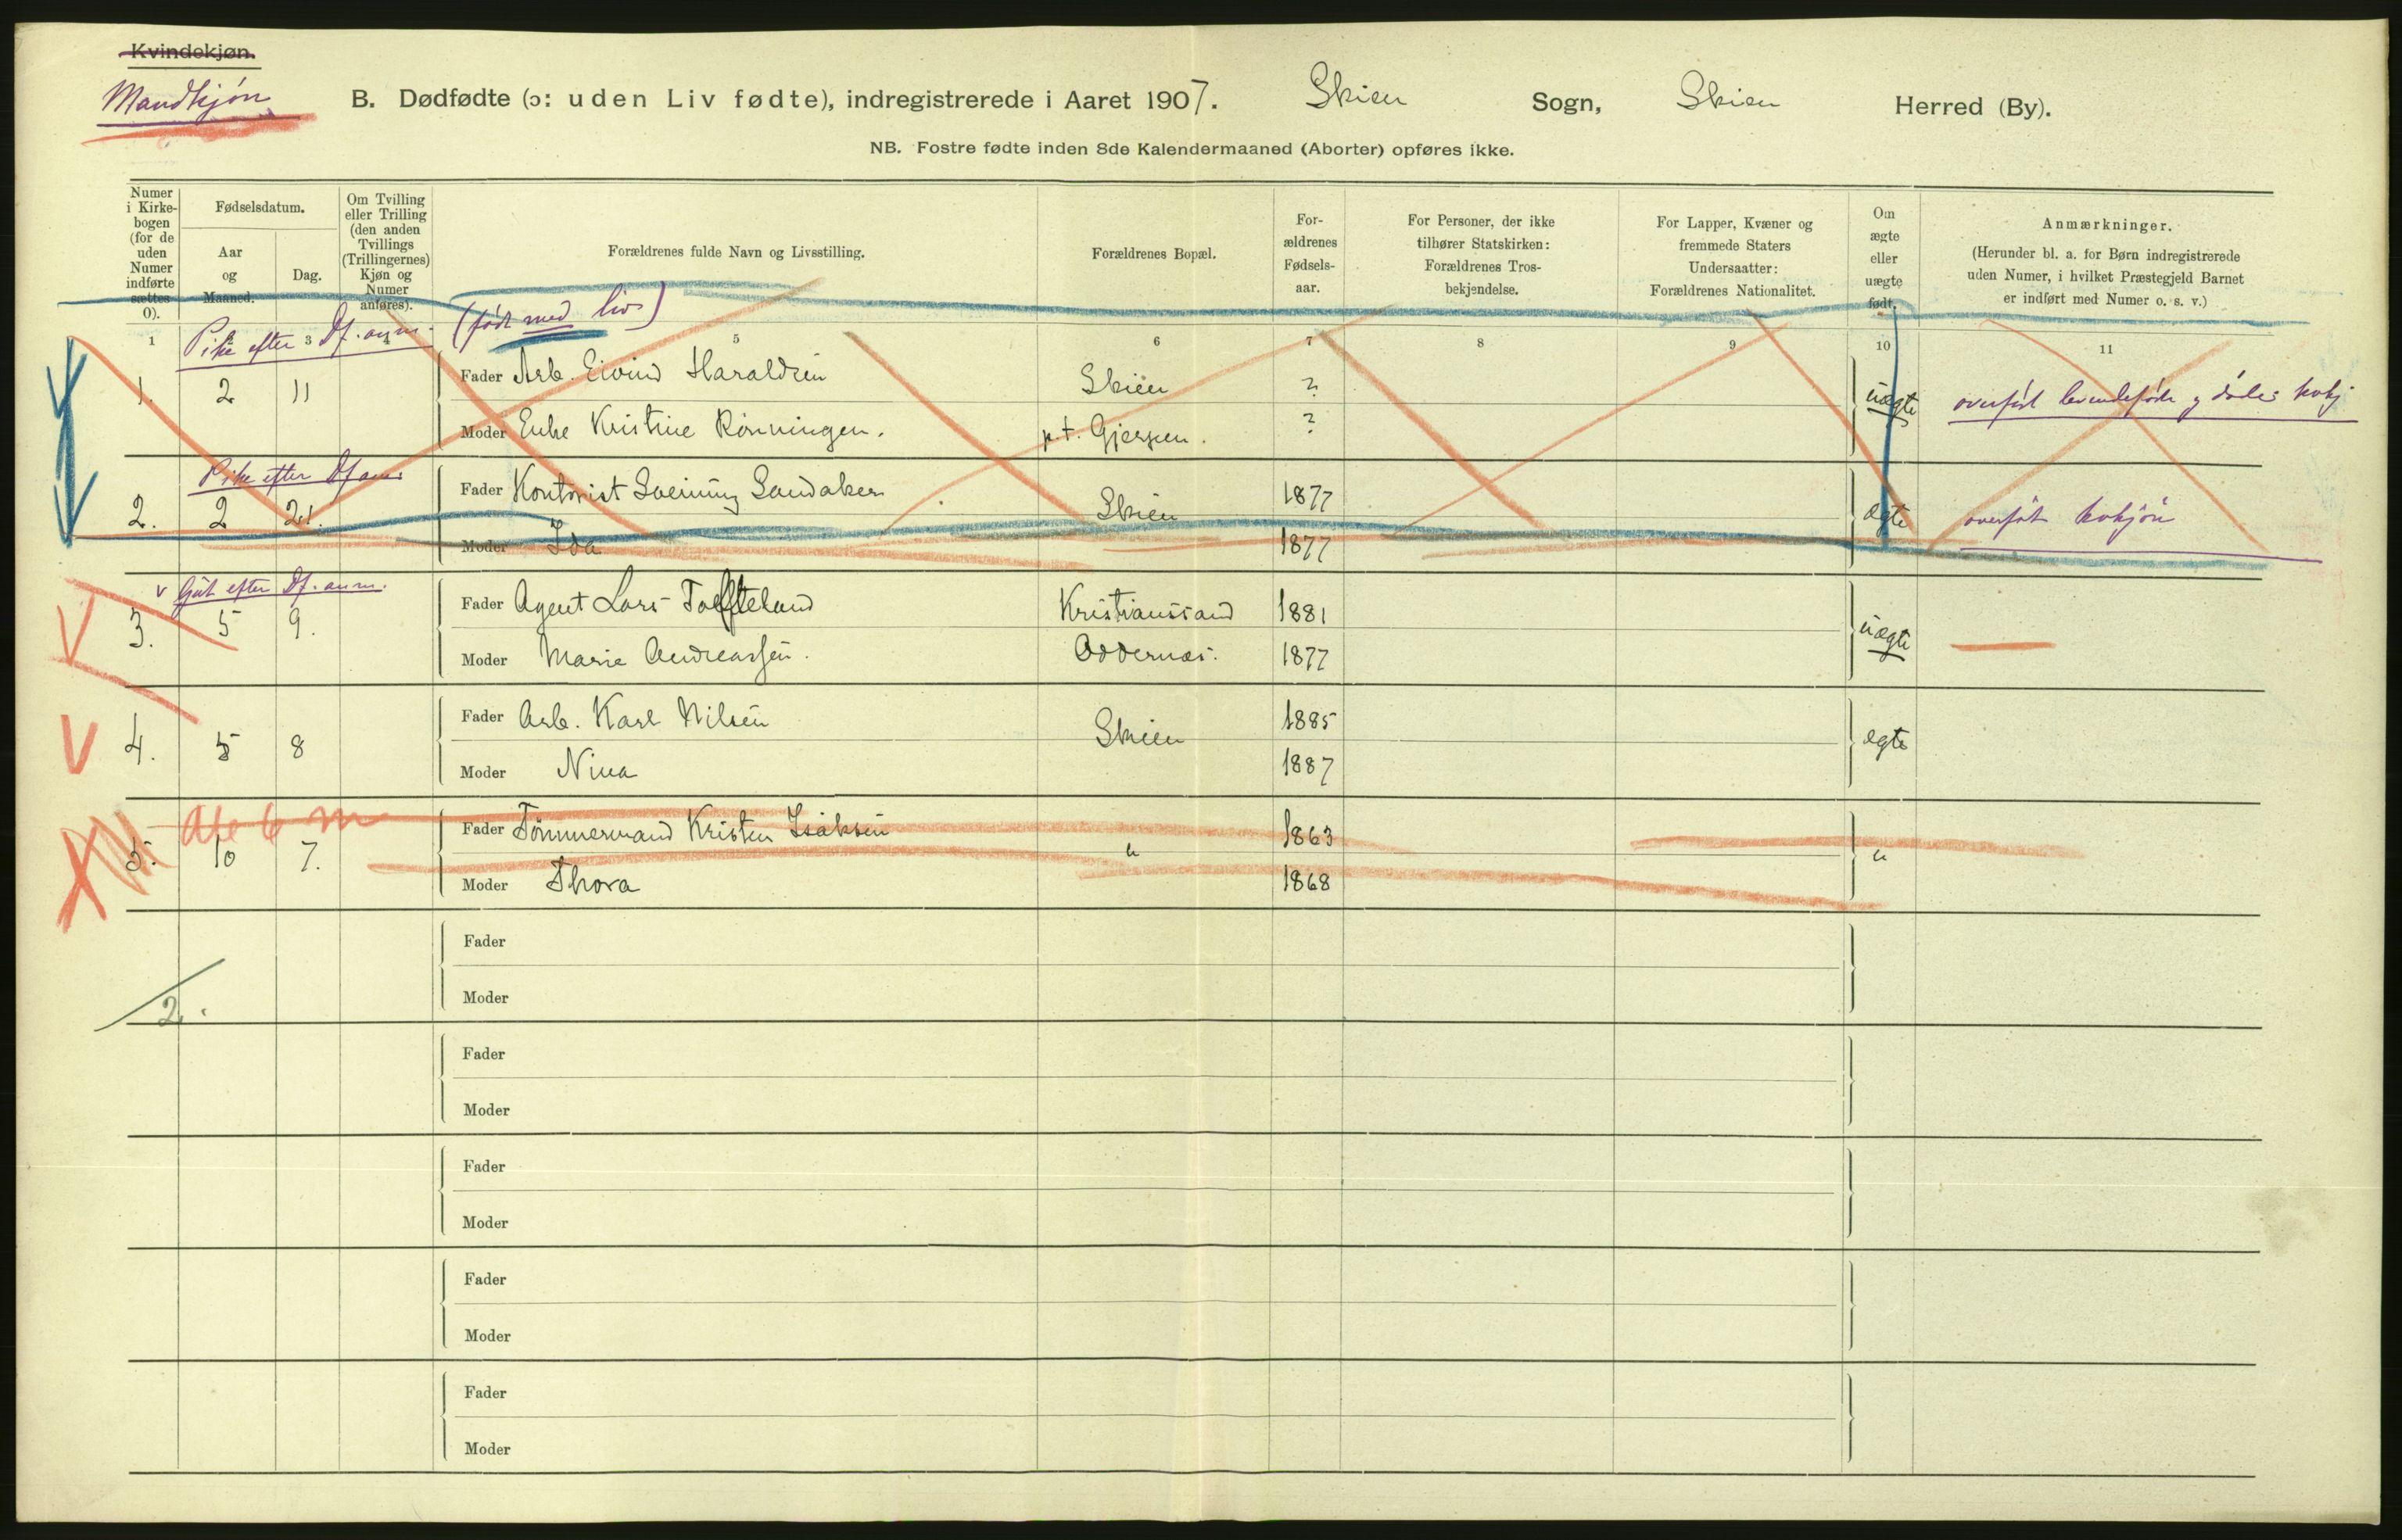 Kvindekjøn.
Mandkjön
B. Dødfødte (ɔ: uden Liv fødte), indregistrerede i Aaret 1907. Skien Sogn, Skien Herred (By).
NB. Fostre fødte inden 8de Kalendermaaned (Aborter) opføres ikke.
Numer i Kirkebogen (for de uden Numer indførte sættes 0).
Fødselsdatum.
Aar og Maaned.
Dag.
Om Tvilling eller Trilling (den anden Tvillings (Trillingernes) Kjøn og Numer anføres).
Forældrenes fulde Navn og Livsstilling.
Forældrenes Bopæl.
Forældrenes Fødselsaar.
For Personer, der ikke tilhører Statskirken: Forældrenes Trosbekjendelse.
For Lapper, Kvæner og fremmede Staters Undersaatter: Forældrenes Nationalitet.
Om ægte eller uægte født.
Anmærkninger.
(Herunder bl. a. for Børn indregistrerede uden Numer, i hvilket Præstegjeld Barnet er indført med Numer o. s. v.)
1 2 3 4 5 6 7 8 9 10 11
Pike efter Df. anm. (født med liv)
1. 2 11 Fader Arb. Eivind Haraldsen Skien ? uægte overført levendefødte og døde kvkj
Moder Enke Kristine Rönningen. p.t. Gjerpen. ?
Pike efter Df anm.
2. 2 21. Fader Kontorist Sveinung Sandaker Skien 1877 ægte overført kvkjön
Moder Ida 1877
v Gut efter Df. anm.
3. 5 9. Fader Agent Lars Tofteland Kristianssand 1881 uægte
Moder Marie Andreassen. Oddernæs. 1877
4. 5 8 Fader Arb. Karl Nilsen Skien 1885 ægte
Moder Nina 1887
6 m
5. 10 7. Fader Tömmermand Kristen Isaksen " 1863 "
Moder Thora 1868
Fader
Moder
2.
Fader
Moder
Fader
Moder
Fader
Moder
Fader
Moder